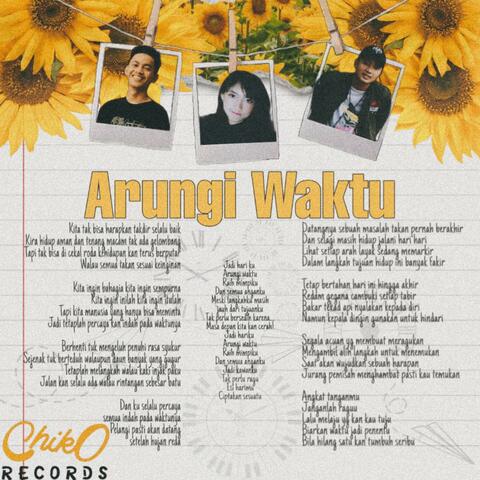 Arungi Waktu
Kita tak bisa harapkan takdir selalu baik
Kira hidup aman dan tenang macam tak ada gelombang
Tapi tak bisa di cekal roda kehidupan kan terus berputar
Walau semua takan sesuai keinginan
Kita ingin bahagia kita ingin sempurna
Kita ingin inilah kita ingin itulah
Tapi kita manusia yang hanya bisa meminta
Jadi tetaplah percaya kan indah pada waktunya
Berhenti tuk mengeluh penuhi rasa syukur
Sejenak tuk berteduh walaupun daun banyak yang gugur
Tetaplah melangkah walau kaki injak paku
Jalan kan selalu ada walau rintangan sebesar batu
Dan ku selalu percaya
semua indah pada waktunya
Pelangi pasti akan datang
setelah hujan reda
Jadi hari ku
Arungi waktu
Raih mimpiku
Dan semua anganku
Meski langkahkul masih
Jauh dari tujuanku
Tak perlu bersedih karena
Masa depan kita kan cerah!
Jadi hariku
Arungi waktu
Raih mimpiku
Dan semua anganku
Jadi kawanku
Tak perlu ragu
Isi harimu
Ciptakan sesuatu
Datangnya sebuah masalah takan pernah berakhir
Dan selagi masih hidup jalani hari hari
Lihat setiap arah layak sedang memarkir
Dalam langkah tujuan hidup ini banyak takir
Tetap bertahan hari ini hingga akhir
Redam segana cambuki setiap tabir
Bakar tekad api nyalakan kepada diri
Namun kepala dingin gunakan untuk hindari
Segala acuan yg membuat meragukan
Mengambil alih langkah untuk menemukan
Saat akan wujudkan sebuah harapan
Jurang pemisah menghambat pasti kau temukan
Angkat tanganmu
Janganlah raguu
Lalu melaju yg kan kau tuju
Biarkan waktu jadi penentu
Bila hilang satu kan tumbuh seribu
ChikO
RECORDS